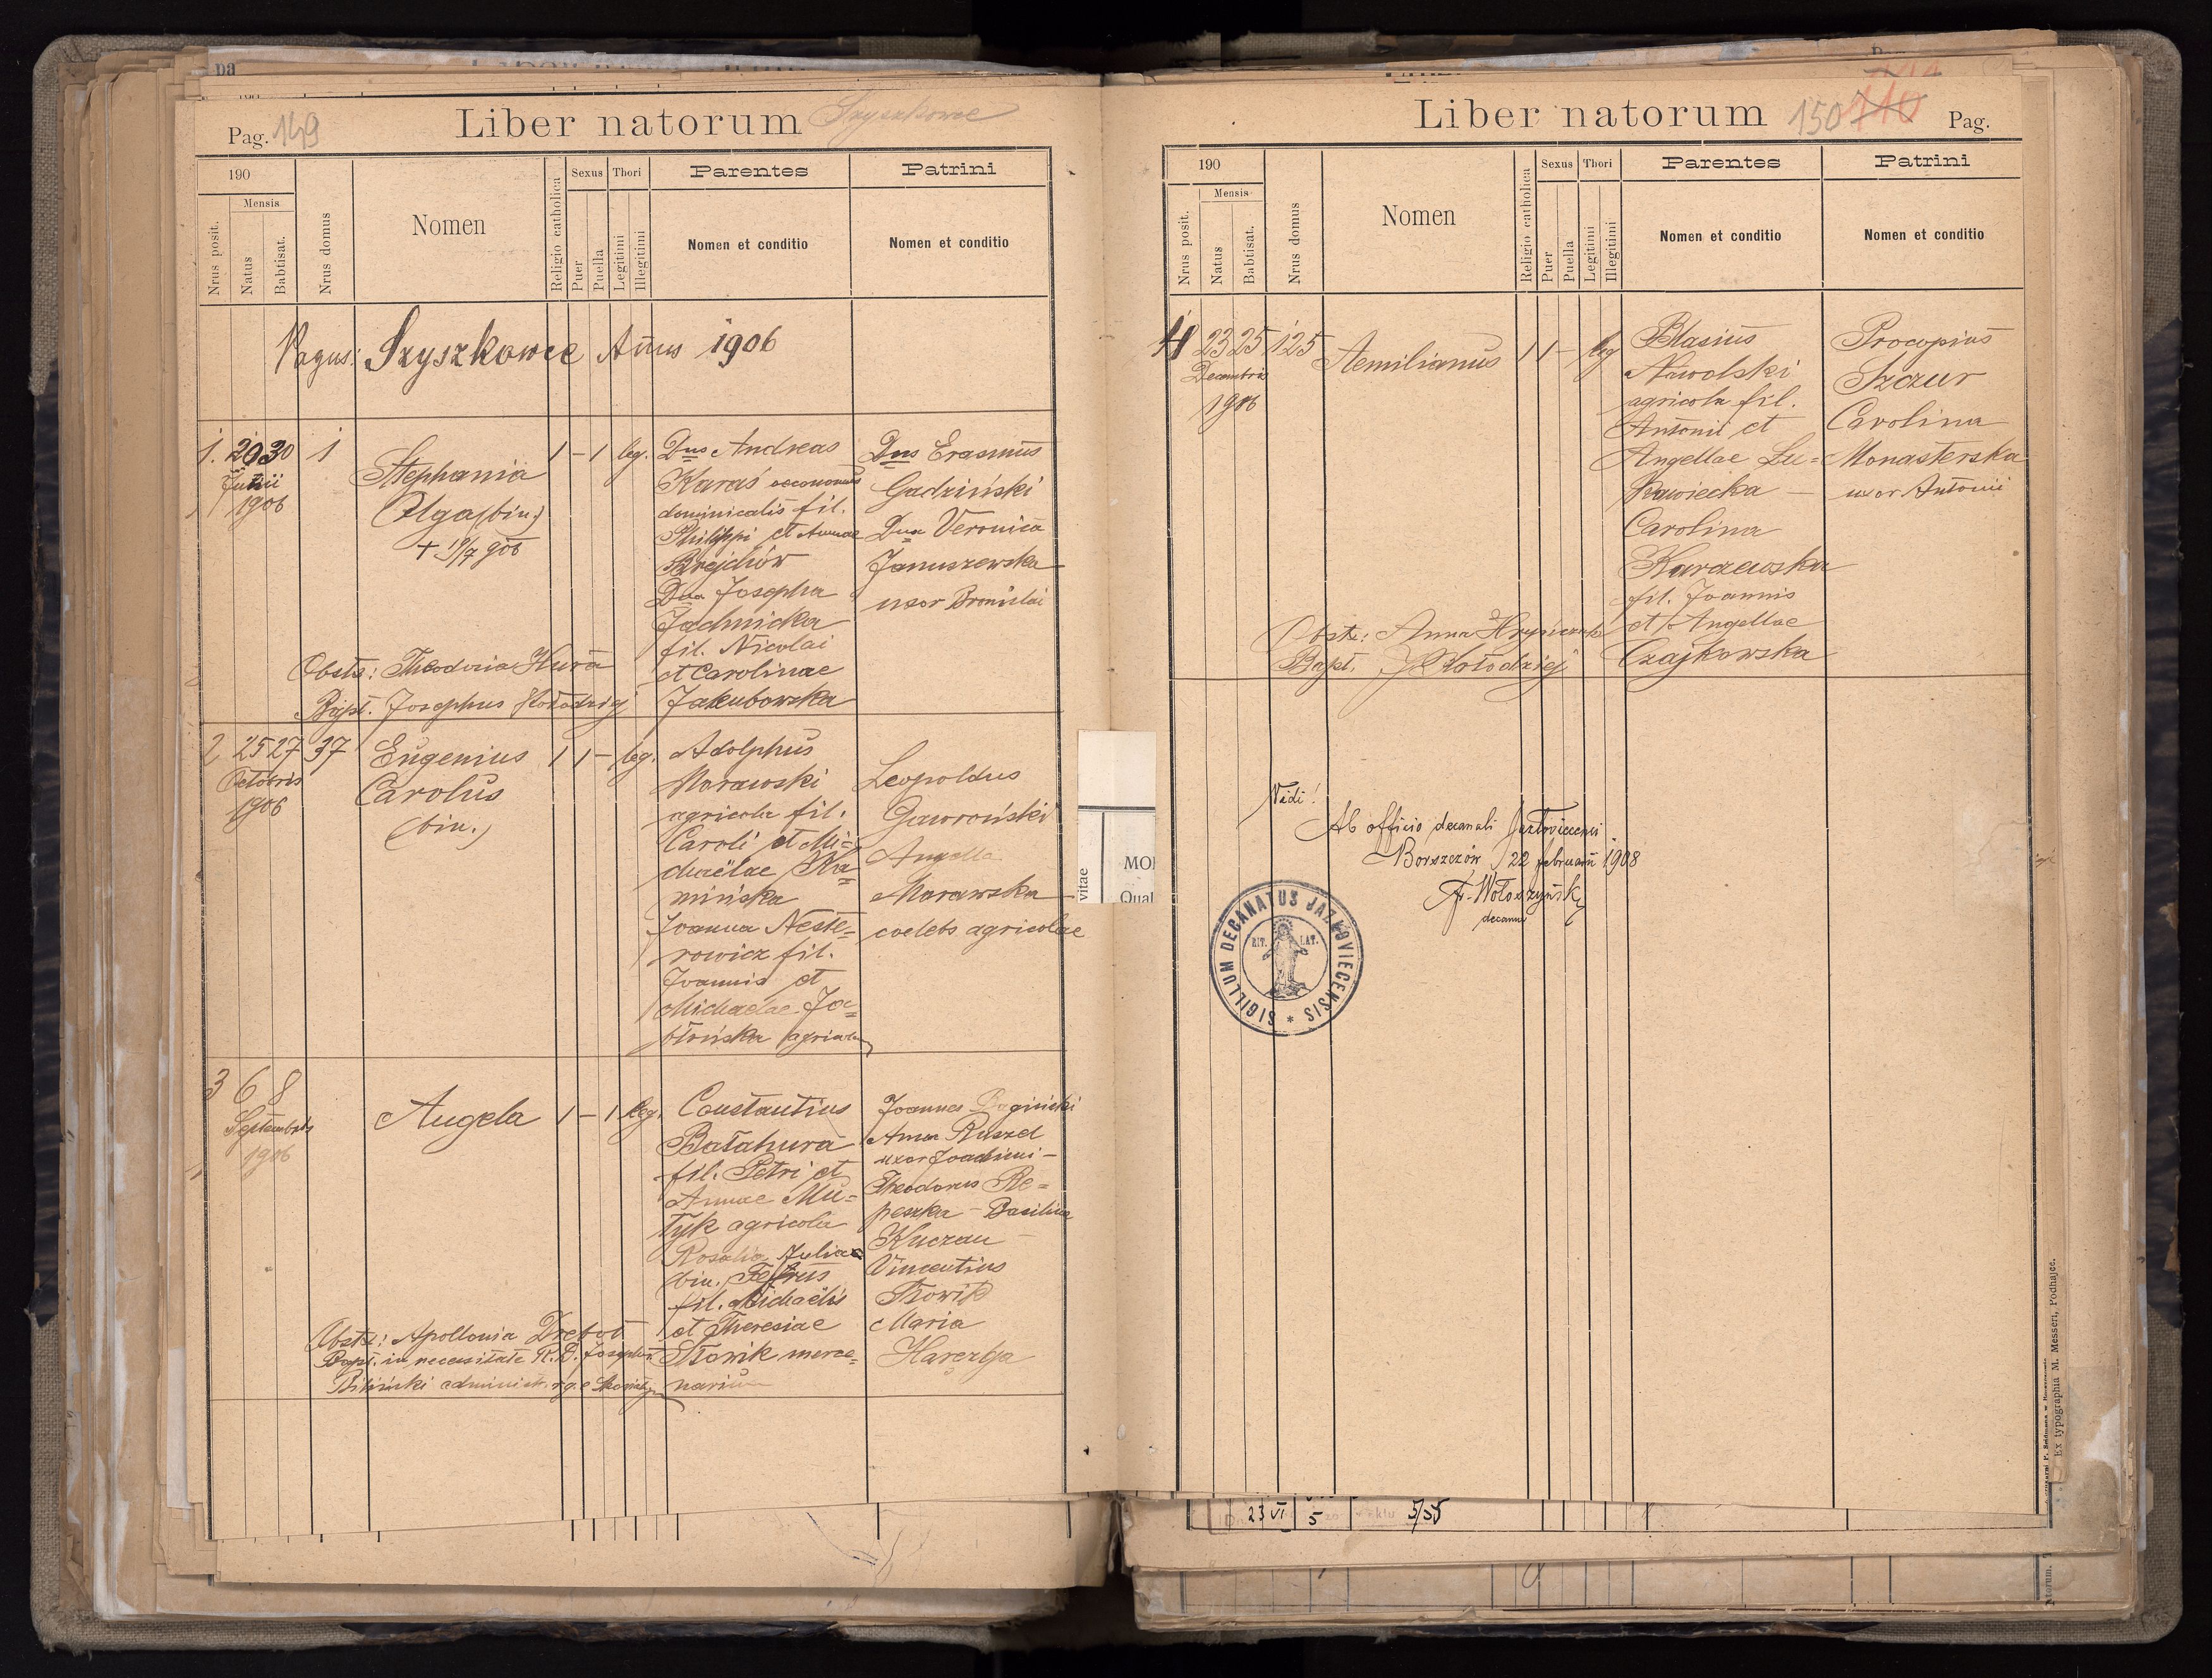 Pag. 149
Liber natorum
Szyszkowce
190
Mensis
Nrus posit.
Natus
Babtisat.
Nrus domus
Nomen
Religio catholica
Sexus
Puer
Puella
Thori
Legitimi
Illegitimi
Parentes
Nomen et conditio
Patrini
Nomen et conditio
Pagus: Szyszkowce Annus 1906
1. 29 30 1
1906
Stephania
Olga (bin.)
1 - 1 leg.
Dnus Andreas
Karaś oeconomus
dominicalis fil.
Philippi et Annae
Brejchów
Dna Josepha
Jachnicka
fil. Nicolai
et Carolinae
Jakubowska
Dnus Erasmus
Gadziński
Dna Veronica
Januszewska
uxor Bronislai
Obste: Theodozia Hura
Bapt. Josephus Kołodziej
2 25 27 37
Octobris
1906
Eugenius
Carolus
(bin.)
1 1 - leg.
Adolphus
Morawski
agricola fil.
Caroli et Mi=
chaëlae Ka=
mińska
Joanna Neste=
rowicz fil.
Joannis et
Michaelae Ja=
błońska agricolae
Leopoldus
Gawroński
Angella
Morawska
coelebs agricolae
3 6 8
Septembris
1906
Angela
1 - 1 leg.
Constantius
Bałahura
fil. Petri et
Annae Mu=
tyk agricola
Rosalia Julia
bin. Petrus
fil. Michaëlis
et Theresiae
Słowik merce=
narium
Joannes Bagiński
Anna Ruszel
uxor Joachimi -
Theodorus Re=
peszka - Basilius
Kuczan -
Vincentius
Słowik
Maria
Obste: Apollonia Drebot
Bapt. in necessitate R. D. Josephus
Biliński administr.
Liber natorum
150
110
Pag.
190
Mensis
Nrus posit.
Natus
Babtisat.
Nrus domus
Nomen
Religio catholica
Sexus
Puer
Puella
Thori
Legitimi
Illegitimi
Parentes
Nomen et conditio
Patrini
Nomen et conditio
4 23 25 125
Decembris
1906
Aemilianus
1 1 - leg
Blasius
Nawolski
agricola fil.
Antonii et
Angellae Lu=
kawiecka -
Carolina
Karczewska
fil. Joannis
et Angellae
Czajkowska
Procopius
Szczur
Carolina
Monasterska
uxor Antonii
Obste: Anna Hryńczuk
Bapt. J Kołodziej
Vidi!
Ab officio decanali Jazłoviecensi
Borszczów 22 februarii 1908
F. Wołoszyński
decanus
SIGILLUM DECANATUS JAZŁOVIECENSIS *
RIT. LAT.
vitae
MO
Qual
23 VI
5
5/55
Ex typographia M. Messeri, Podhajce.